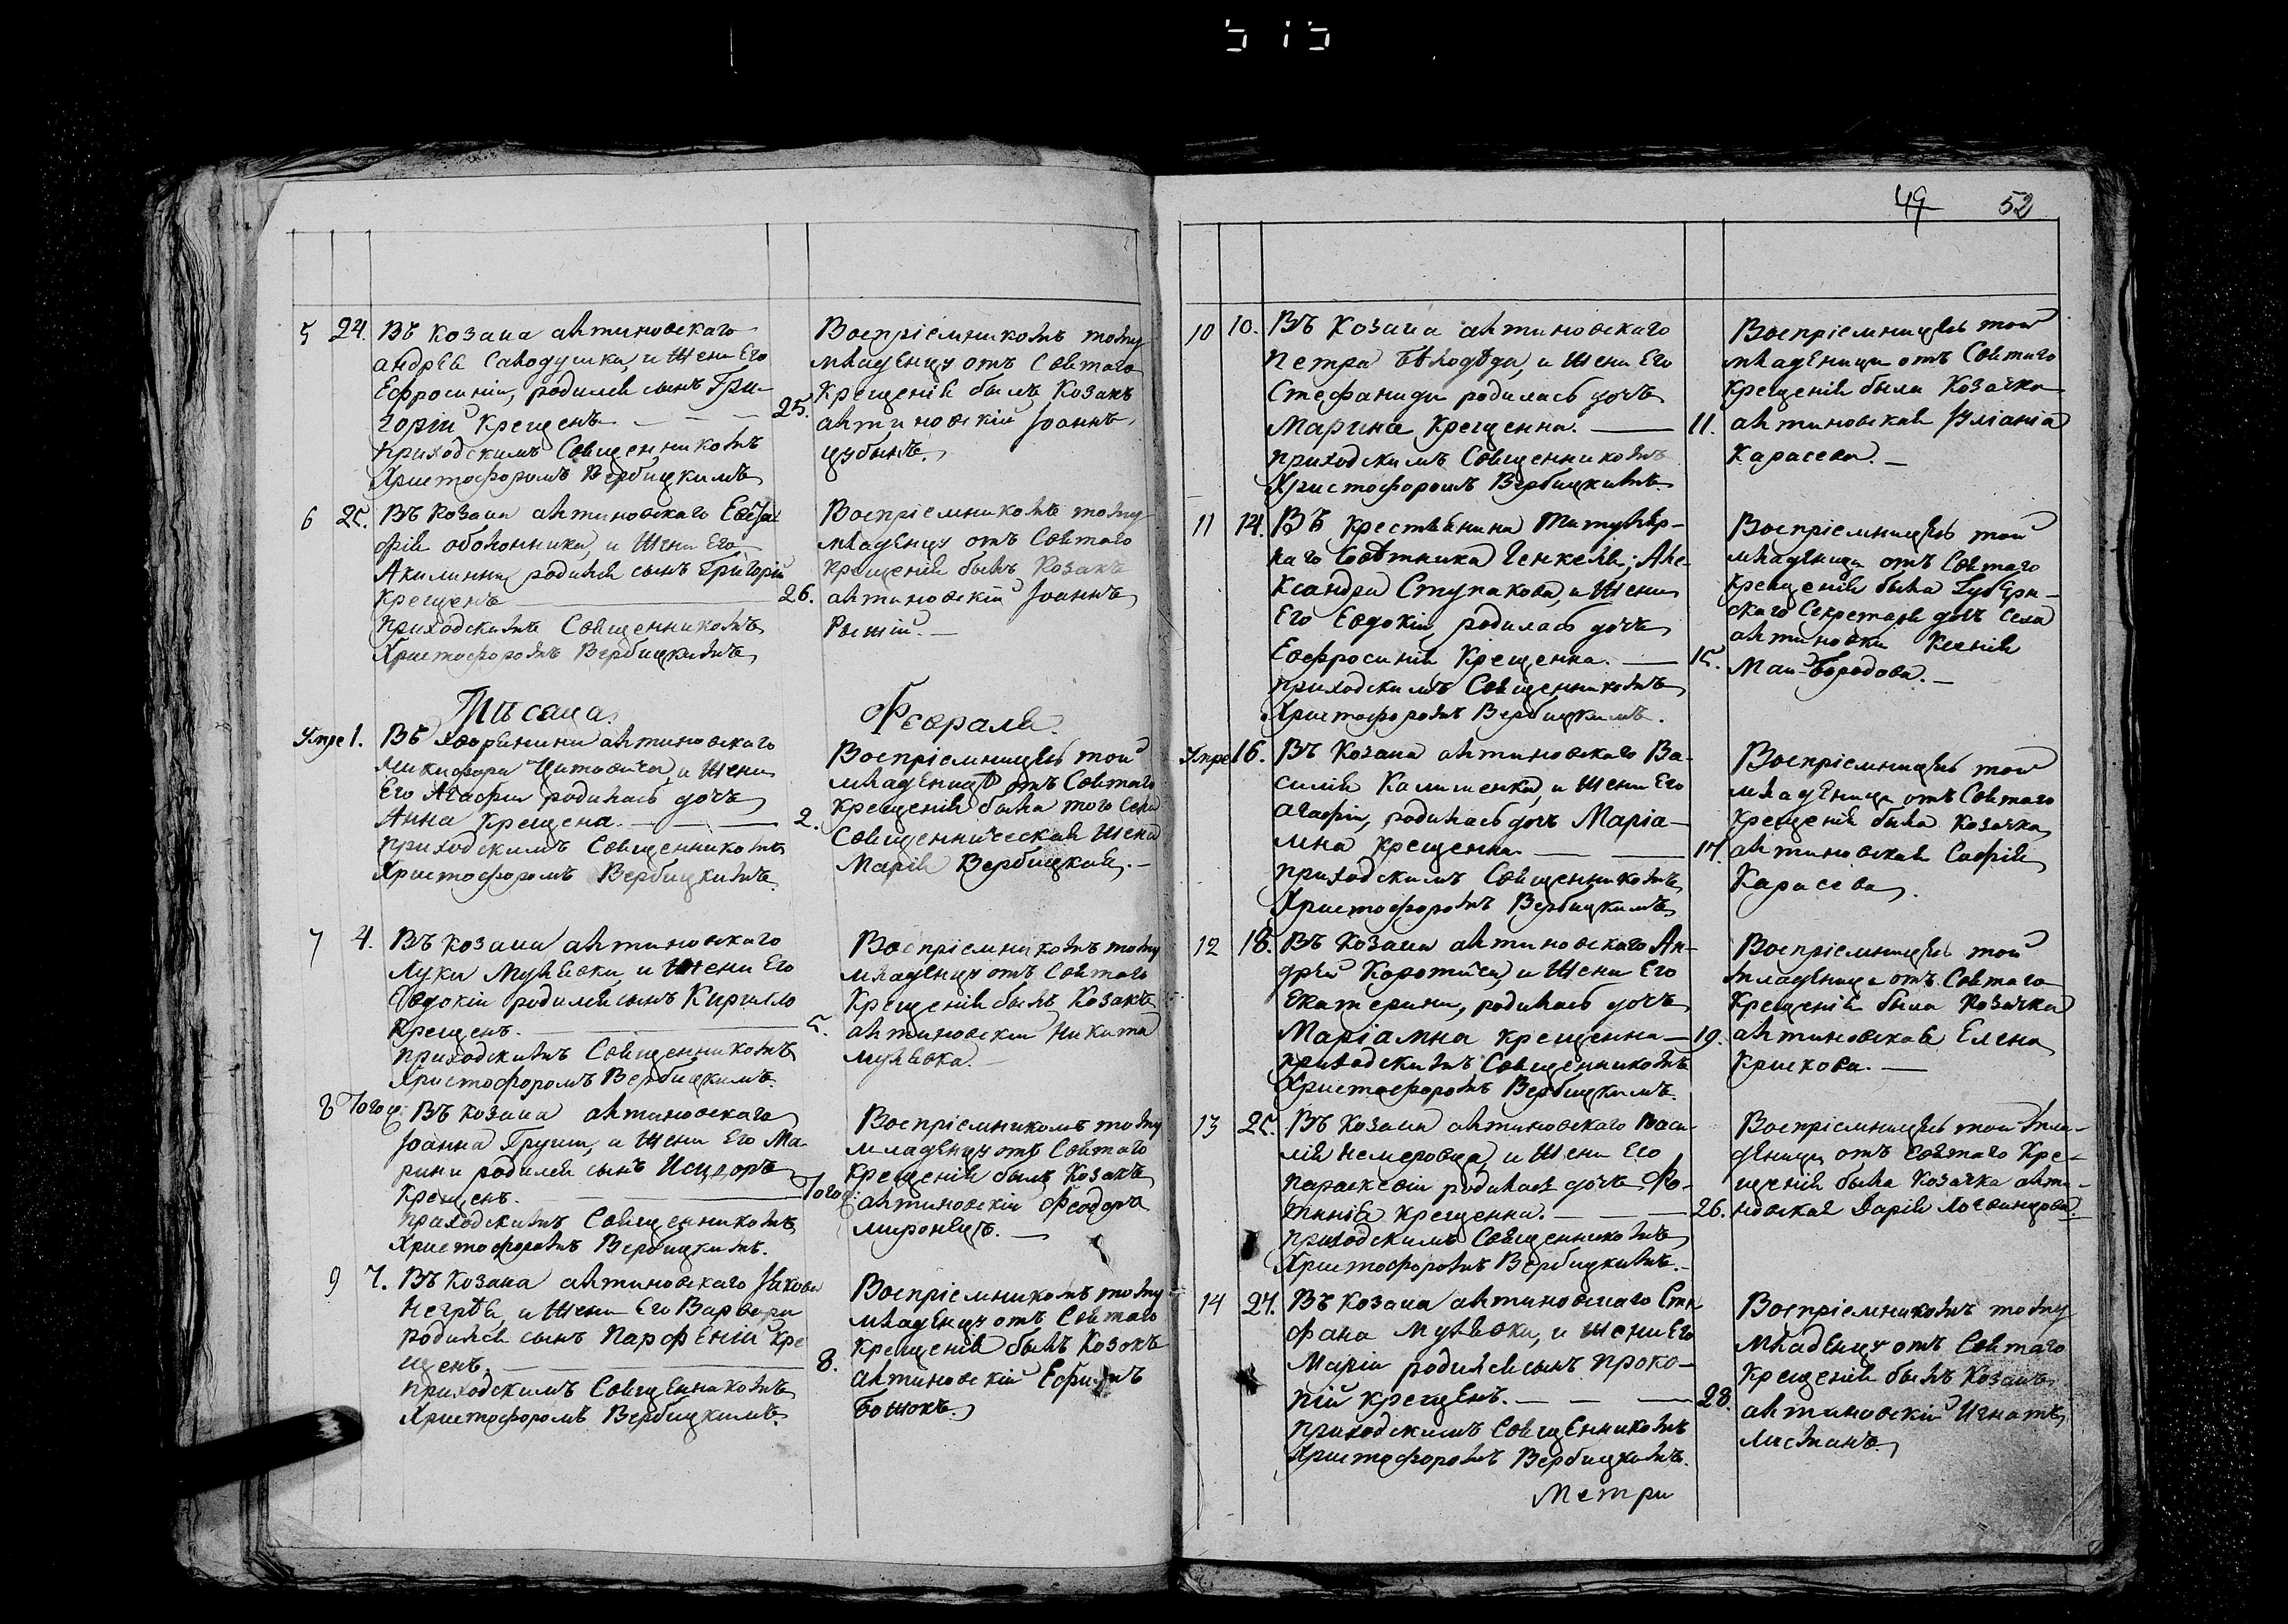 49 52
5 24. Въ козака алтиновскаго
Андрѣя Самодушка, и жени Его
Ефросиніи, родился сынъ Гри-
горій Крещенъ. 25.
приходскимъ Священникомъ
Христофоромъ Вербицкимъ
Воспріемникомъ тому
младенцу отъ Святаго
Крещенія былъ Козакъ
алтиновскій Іоаннъ
Цубынъ.
6 25. Въ Козака алтиновскаго Евста-
фія оболонника, и жени Его
Акилинни родился сынъ Григорій
Крещенъ 26.
приходскимъ Священникомъ
Христофоромъ Вербицкимъ
Воспріемникомъ тому
младенцу отъ Святаго
крещенія былъ Козакъ
алтиновскій Іоаннъ
Рыжій.
Мѣсяца Февраля
1. Въ дворянина алтиновскаго
Никифора Цитовича, и жени
Его Агафіи родилась дочь
Анна Крещена. 2.
приходскимъ Священникомъ
Христофоромъ Вербицкимъ
Воспріемницею той
младеницѣ отъ Святаго
крещенія была того села
Священническая жена
Марія Вербицкая.
7 4. Въ козака алтиновскаго
Луки Мулявки, и жени Его
Евдокіи родился сынъ Кирилло
Крещенъ. 5.
приходскимъ Священникомъ
Христофоромъ Вербицкимъ.
Воспріемникомъ тому
младенцу отъ Святаго
Крещенія былъ Козакъ
алтиновскій Никита
Мулявка.
8 Того ч. Въ козака алтиновскаго
Іоанна Груши, и жени Его Ма-
рини родился сынъ Исидоръ
Крещенъ. Того ч.
приходскимъ Священникомъ
Христофоромъ Вербицкимъ.
Воспріемникомъ тому
младенцу отъ Святаго
крещенія былъ Козакъ
алтиновскій Феодоръ
Миронецъ.
9 7. Въ Козака алтиновскаго Іякова
Негрѣя, и жени Его Варвари
родился сынъ Парфеній кре
щенъ. 8.
приходскимъ Священникомъ
Христофоромъ Вербицкимъ.
Воспріемникомъ тому
младенцу отъ Святаго
крещенія былъ Козакъ
алтиновскій Ефимъ
Божокъ.
10 10. Въ Козака алтиновскаго
Петра Бѣлодѣда, и жени Его
Стефаниди родилась дочь
Марина Крещенна. 11.
приходскимъ Священникомъ
Христофоромъ Вербицкимъ.
Воспріемницею той
младеници отъ Святаго
крещенія была Козачка
алтиновская Уліанія
Карасева.
11 14. Въ крестьянина Титуляр-
наго Совѣтника Генкеля; Але-
ксандра Ступакова, и жени
Его Евдокіи, родилась дочь
Евфросинія Крещенна. 15.
приходскимъ Священникомъ
Христофоромъ Вербицкимъ.
Воспріемницею той
младеници отъ Святаго
Крещенія была Губерн-
скаго Секретаря дочь села
алтиновки Ксенія
Май-Бородова.
16. Въ Козака алтиновскаго Ва-
силія Калиженка, и жени Его
Агафіи, родилась дочь Маріа-
мна крещенна. 17.
приходскимъ Священникомъ
Христофоромъ Вербицкимъ
Воспріемницею той
младеници отъ Святаго
Крещенія была Козачка
алтиновская Софія
Карасева.
12 18. Въ Козака алтиновскаго Ан-
дрея Коротича, и жени Его
Екатерини, родилась дочь
Маріамна крещенна 19.
приходскимъ Священникомъ
Христофоромъ Вербицкимъ.
Воспріемницею той
младеници отъ Святаго
Крещенія была Козачка
алтиновская Елена
Крискова.
13 25. Въ Козака алтиновскаго Васи-
лія Немеровца, и жени Его
Параскевіи родилася дочь Фо-
тинія крещенна. 26.
приходскимъ Священникомъ
Христофоромъ Вербицкимъ.
Воспріемницею той мла-
деници отъ Святаго Кре-
щенія была Козачка алти-
новская Дарія Логвинцова.
14 27. Въ Козака алтиновскаго Сте
фана Мулявки, и жени Его
Маріи родился сынъ Проко-
пій крещенъ. 28.
приходскимъ Священникомъ
Христофоромъ Вербицкимъ.
Воспріемникомъ тому
младенцу отъ Святаго
Крещенія былъ Козакъ
алтиновскій Игнатъ
Листанъ.
Метри